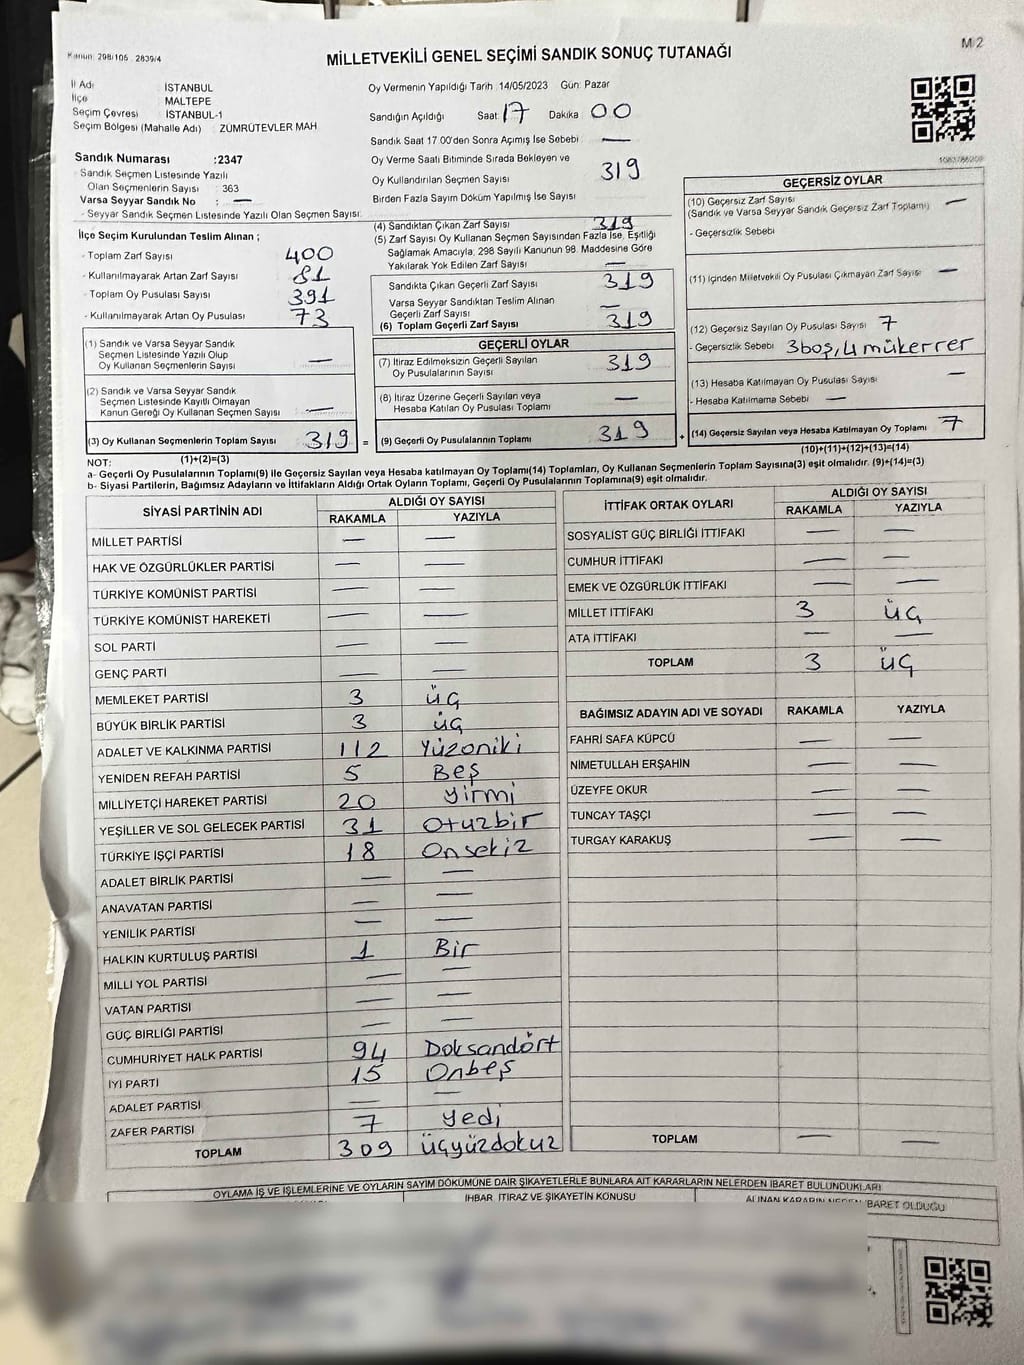 Kanun: 298/105 2839/4
MİLLETVEKİLİ GENEL SEÇİMİ SANDIK SONUÇ TUTANAĞI
M/2
İl Adı İSTANBUL
İlçe MALTEPE
Seçim Çevresi İSTANBUL-1
Seçim Bölgesi (Mahalle Adı) : ZÜMRÜTEVLER MAH
Oy Vermenin Yapıldığı Tarih : 14/05/2023 Gün: Pazar
Sandığın Açıldığı Saat 17 Dakika 00
Sandık Saat 17:00'den Sonra Açımış İse Sebebi —
Sandık Numarası :2347
- Sandık Seçmen Listesinde Yazılı
Olan Seçmenlerin Sayısı : 363
Varsa Seyyar Sandık No : —
- Seyyar Sandık Seçmen Listesinde Yazılı Olan Seçmen Sayısı:
Oy Verme Saati Bitiminde Sırada Bekleyen ve
Oy Kullandırılan Seçmen Sayısı 319
Birden Fazla Sayım Döküm Yapılmış İse Sayısı
İlçe Seçim Kurulundan Teslim Alınan ;
- Toplam Zarf Sayısı 400
- Kullanılmayarak Artan Zarf Sayısı 81
- Toplam Oy Pusulası Sayısı 391
- Kullanılmayarak Artan Oy Pusulası 73
(1) Sandık ve Varsa Seyyar Sandık
Seçmen Listesinde Yazılı Olup
Oy Kullanan Seçmenlerin Sayısı —
(2) Sandık ve Varsa Seyyar Sandık
Seçmen Listesinde Kayıtlı Olmayan
Kanun Gereği Oy Kullanan Seçmen Sayısı —
(3) Oy Kullanan Seçmenlerin Toplam Sayısı 319 =
(1)+(2)=(3)
(4) Sandıktan Çıkan Zarf Sayısı 319
(5) Zarf Sayısı Oy Kullanan Seçmen Sayısından Fazla İse, Eşitliği
Sağlamak Amacıyla, 298 Sayılı Kanunun 98. Maddesine Göre
Yakılarak Yok Edilen Zarf Sayısı —
Sandıkta Çıkan Geçerli Zarf Sayısı 319
Varsa Seyyar Sandıktan Teslim Alınan
Geçerli Zarf Sayısı —
(6) Toplam Geçerli Zarf Sayısı 319
GEÇERLİ OYLAR
(7) İtiraz Edilmeksizin Geçerli Sayılan
Oy Pusulalarının Sayısı 319
(8) İtiraz Üzerine Geçerli Sayılan veya
Hesaba Katılan Oy Pusulası Toplamı —
(9) Geçerli Oy Pusulalarının Toplamı 319 +
1083786209
GEÇERSİZ OYLAR
(10) Geçersiz Zarf Sayısı
(Sandık ve Varsa Seyyar Sandık Geçersiz Zarf Toplamı) —
- Geçersizlik Sebebi
(11) İçinden Milletvekili Oy Pusulası Çıkmayan Zarf Sayısı —
(12) Geçersiz Sayılan Oy Pusulası Sayısı 7
- Geçersizlik Sebebi 3boş, 4 mükerrer
(13) Hesaba Katılmayan Oy Pusulası Sayısı —
- Hesaba Katılmama Sebebi —
(14) Geçersiz Sayılan veya Hesaba Katılmayan Oy Toplamı 7
(10)+(11)+(12)+(13)=(14)
NOT:
a- Geçerli Oy Pusulalarının Toplamı(9) ile Geçersiz Sayılan veya Hesaba katılmayan Oy Toplamı(14) Toplamları, Oy Kullanan Seçmenlerin Toplam Sayısına(3) eşit olmalıdır. (9)+(14)=(3)
b- Siyasi Partilerin, Bağımsız Adayların ve İttifakların Aldığı Ortak Oyların Toplamı, Geçerli Oy Pusulalarının Toplamına(9) eşit olmalıdır.
SİYASİ PARTİNİN ADI ALDIĞI OY SAYISI
RAKAMLA YAZIYLA
MİLLET PARTİSİ — —
HAK VE ÖZGÜRLÜKLER PARTİSİ — —
TÜRKİYE KOMÜNİST PARTİSİ — —
TÜRKİYE KOMÜNİST HAREKETİ — —
SOL PARTİ — —
GENÇ PARTİ — —
MEMLEKET PARTİSİ 3 üç
BÜYÜK BİRLİK PARTİSİ 3 üç
ADALET VE KALKINMA PARTİSİ 112 Yüzoniki
YENİDEN REFAH PARTİSİ 5 Beş
MİLLİYETÇİ HAREKET PARTİSİ 20 yirmi
YEŞİLLER VE SOL GELECEK PARTİSİ 31 Otuzbir
TÜRKİYE İŞÇİ PARTİSİ 18 Onsekiz
ADALET BİRLİK PARTİSİ — —
ANAVATAN PARTİSİ — —
YENİLİK PARTİSİ — —
HALKIN KURTULUŞ PARTİSİ 1 Bir
MİLLİ YOL PARTİSİ — —
VATAN PARTİSİ — —
GÜÇ BİRLİĞİ PARTİSİ — —
CUMHURİYET HALK PARTİSİ 94 Doksandört
İYİ PARTİ 15 Onbeş
ADALET PARTİSİ — —
ZAFER PARTİSİ 7 yedi
TOPLAM 309 üçyüzdokuz
İTTİFAK ORTAK OYLARI ALDIĞI OY SAYISI
RAKAMLA YAZIYLA
SOSYALİST GÜÇ BİRLİĞİ İTTİFAKI — —
CUMHUR İTTİFAKI — —
EMEK VE ÖZGÜRLÜK İTTİFAKI — —
MİLLET İTTİFAKI 3 üç
ATA İTTİFAKI — —
TOPLAM 3 üç
BAĞIMSIZ ADAYIN ADI VE SOYADI RAKAMLA YAZIYLA
FAHRİ SAFA KÜPCÜ — —
NİMETULLAH ERŞAHİN — —
ÜZEYFE OKUR — —
TUNCAY TAŞÇI — —
TURGAY KARAKUŞ — —
TOPLAM — —
OYLAMA İŞ VE İŞLEMLERİNE VE OYLARIN SAYIM DÖKÜMÜNE DAİR ŞİKAYETLERLE BUNLARA AİT KARARLARIN NELERDEN İBARET BULUNDUKLARI
İHBAR, İTİRAZ VE ŞİKAYETİN KONUSU
ALINAN KARARIN NEDEN İBARET OLDUĞU